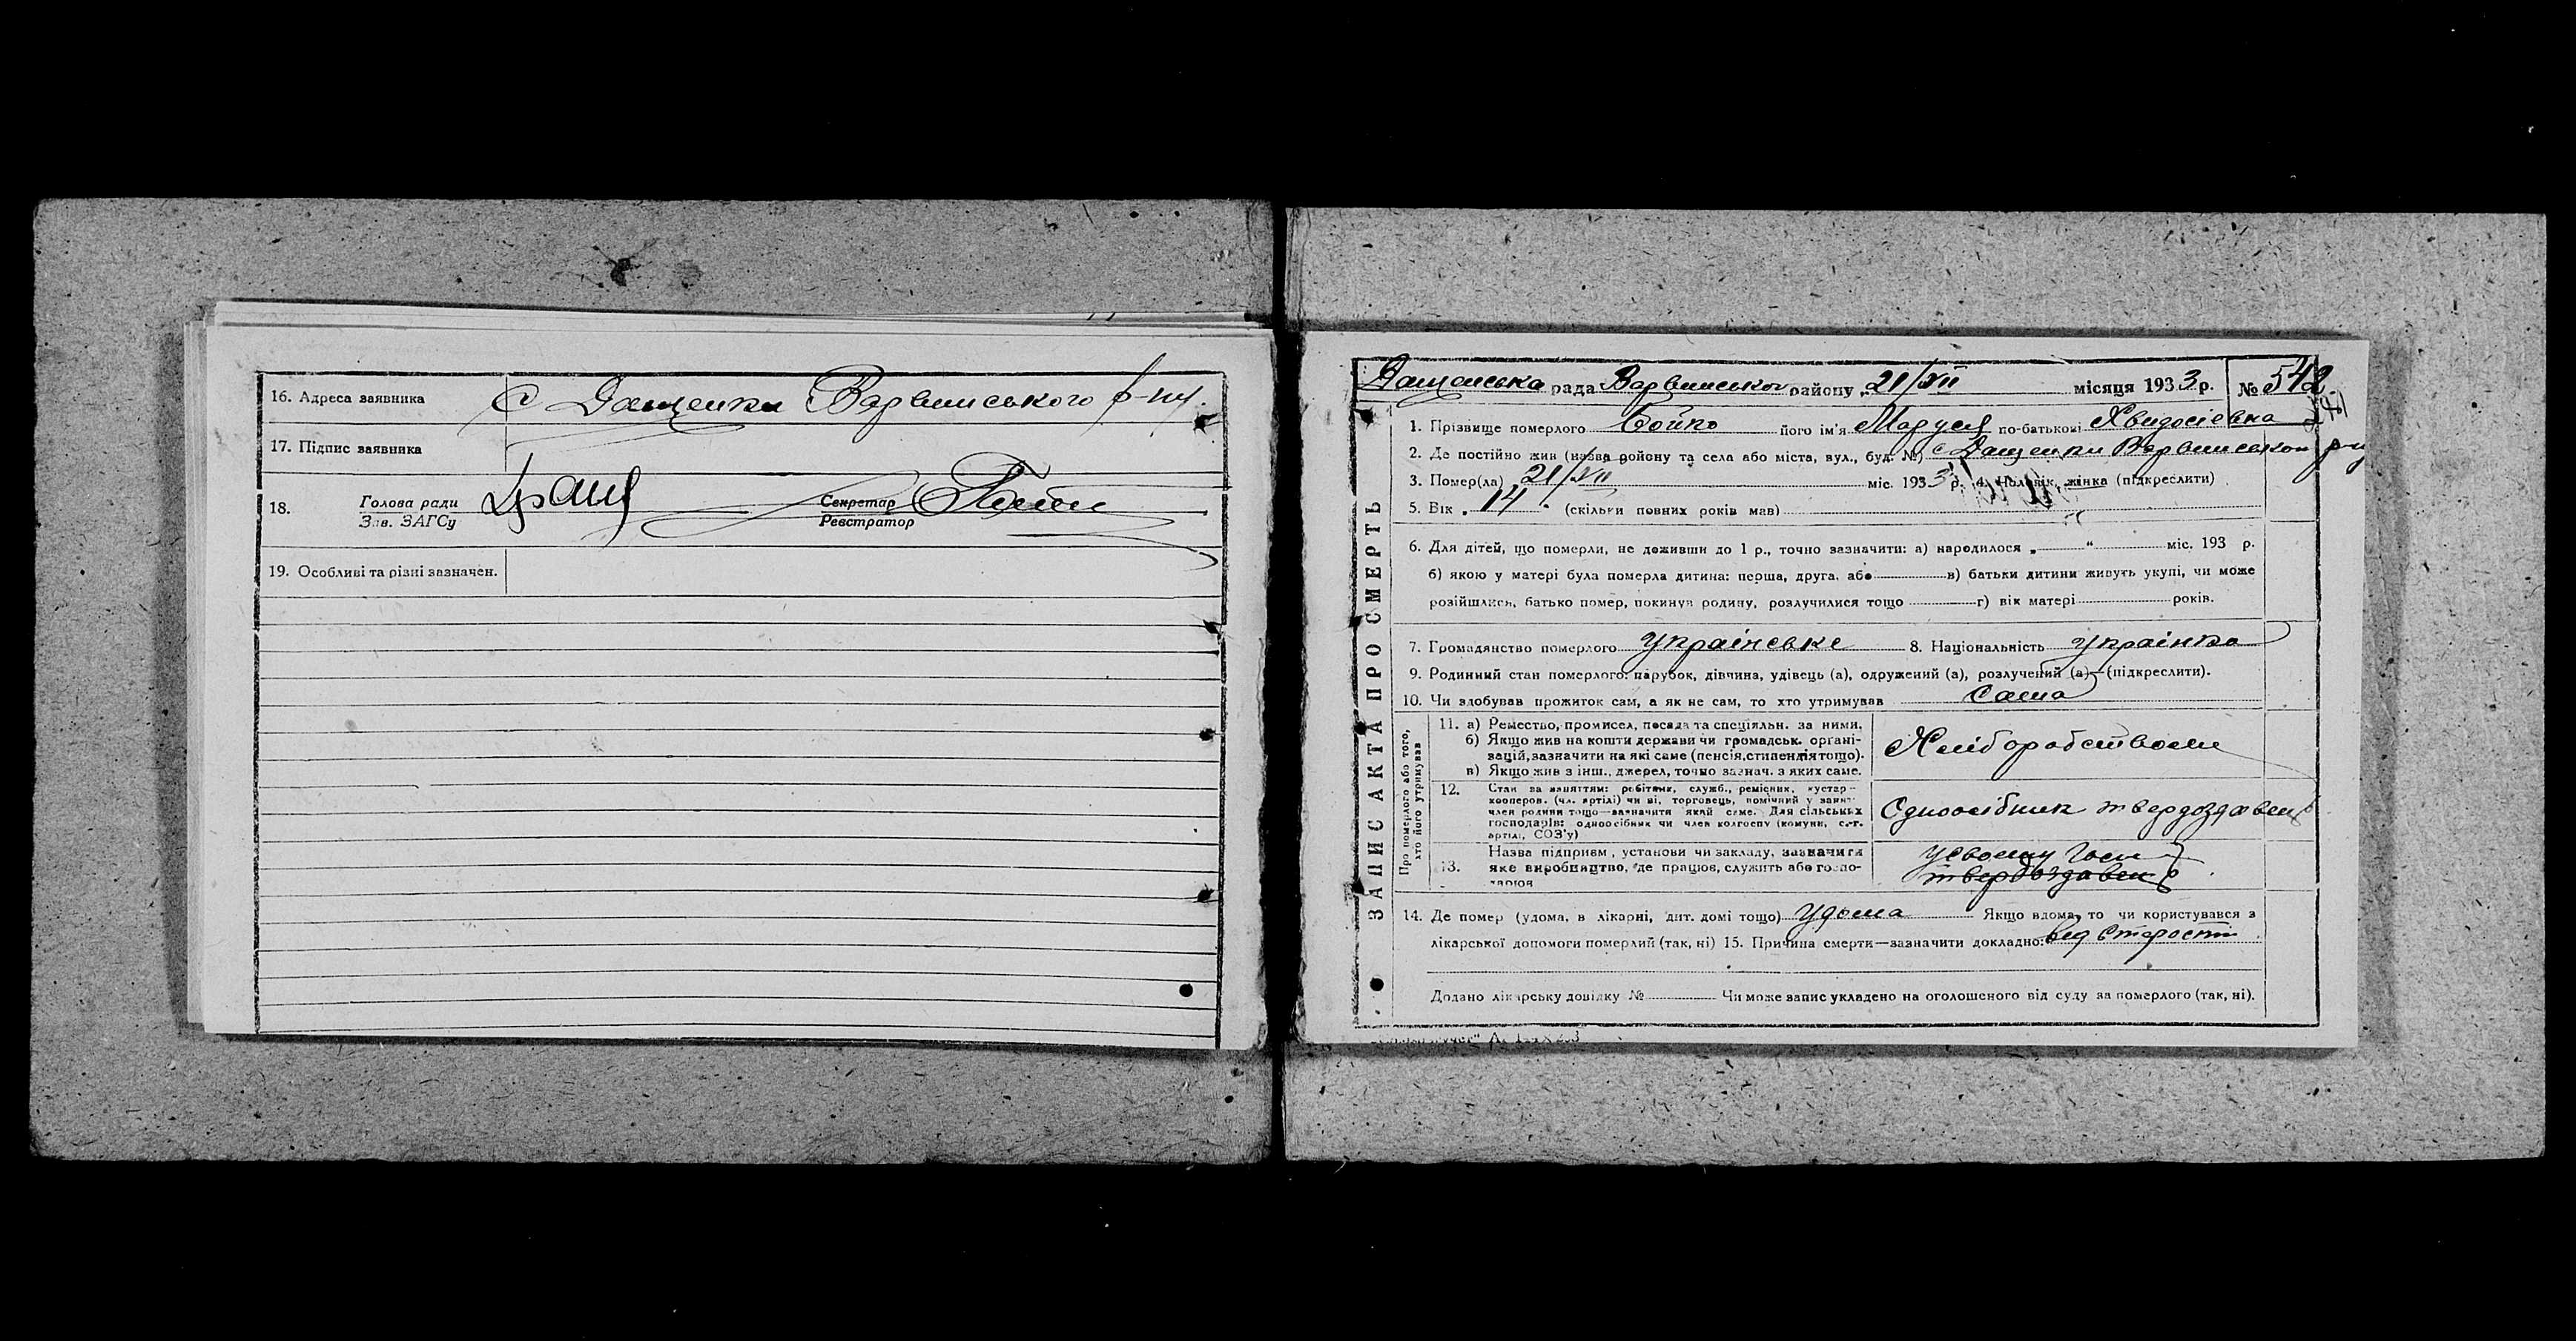 16. Адреса заявника с Дащенки Варвинського р-ну.
17. Підпис заявника
18. Голова ради
Зав. ЗАГСу
Секретар
Реєстратор
19. Особливі та різні зазначен.
ЗАПИС АКТА ПРО СМЕРТЬ
Дащенська рада Варвинськог району „21/XII місяця 1933 р. № 542
1. Прізвище померлого Бойко його ім'я Маруся по-батькові Явдосієвна
2. Де постійно жив (назва району та села або міста, вул., буд. №) с Дащенки Варвинськог р-ну
3. Помер(ла) „21/XII міс. 1933 р. 4. Чоловік, жінка (підкреслити)
5. Вік „14 (скільки повних років мав)
6. Для дітей, що померли, не доживши до 1 р., точно зазначити: а) народилося „ “ міс. 193 р.
б) якою у матері була померла дитина: перша, друга, або в) батьки дитини живуть укупі, чи може
розійшлись, батько помер, покинув родину, розлучилися тощо г) вік матері років.
7. Громадянство померлого українське 8. Національність українка
9. Родинний стан померлого: парубок, дівчина, удівець (а), одружений (а), розлучений (а)—(підкреслити).
10. Чи здобував прожиток сам, а як не сам, то хто утримував Сама
Про померлого або того, хто його утримував
11. а) Ремество, промисел, посада та спеціяльн. за ними.
б) Якщо жив на кошти держави чи громадськ. органі-
зацій, зазначити на які саме (пенсія, стипендія тощо).
в) Якщо жив з інш., джерел, точно зазнач. з яких саме.
Хліборобством
12. Стан за заняттям: робітник, служб., ремісник, кустар-
кооперов. (чл. артілі) чи ні, торговець, помічний у занят
член родини тощо—зазначити який саме. Для сільських
господарів: одноосібник чи член колгоспу (комуни, с.-г.
артілі, СОЗ'у)
Одноосібник твердоздавець
13. Назва підприєм., установи чи закладу, зазначити
яке виробництво, де працює, служить або госпо-
дарює
усвоєму Госп
твердоздавець
14. Де помер (удома, в лікарні, дит. домі тощо) Удома Якщо вдома, то чи користувався з
лікарської допомоги померлий (так, ні) 15. Причина смерти—зазначити докладно: від Старости
Додано лікарську довідку № Чи може запис укладено на оголошеного від суду за померлого (так, ні).